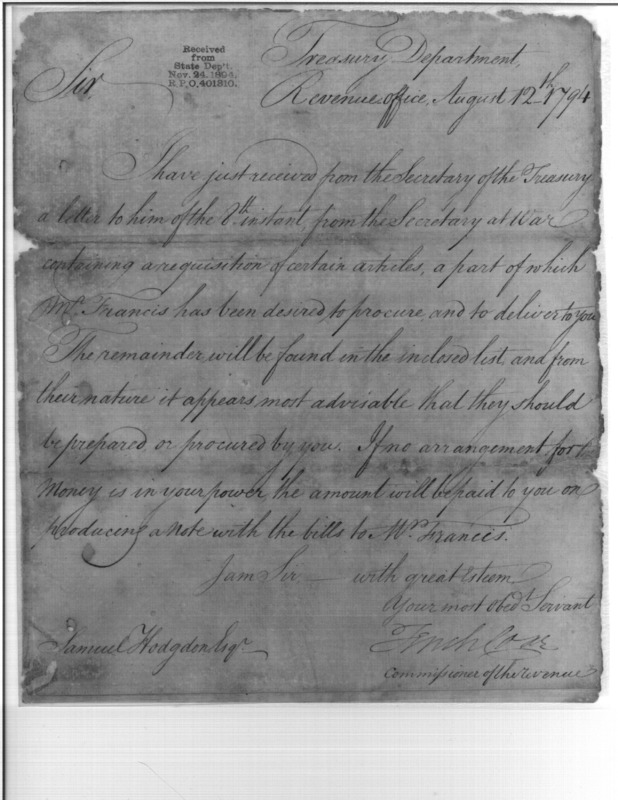 Received
from
State Dep't.
Nov. 24. 1894.
R.P.O. 401310.
Treasury Department,
Sir,
Revenue office, August 12th 1794
I have just received from the Secretary of the Treasury
a letter to him of the 8th instant, from the Secretary at War
containing a requisition of certain articles, a part of which
Mr. Francis has been desired to procure, and to deliver to you
The remainder will be found in the inclosed list, and from
their nature it appears most advisable that they should
be prepared, or procured by you. If no arrangement for the
Money is in your power, the amount will be paid to you on
producing a note with the bills to Mr. Francis.
I am Sir — with great Esteem
Your most obedt. Servant
Samuel Hodgdon Esqr.
Tench Coxe
Commissioner of the revenue